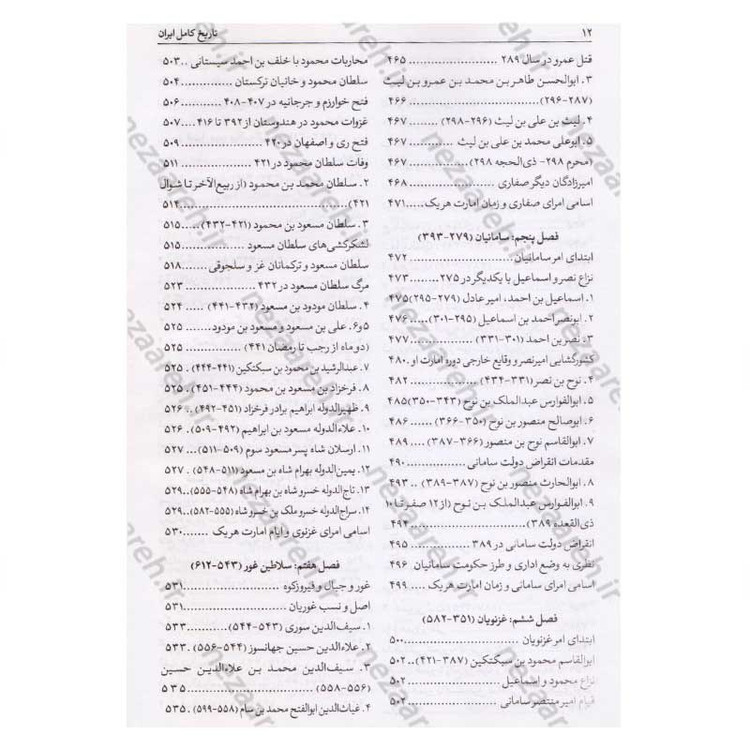 ۱۲ تاریخ کامل ایران
قتل عمرو در سال ۲۸۹ ...................... ۴۶۵
۳. ابوالحسن طاهر بن محمد بن عمرو بن لیث
(۲۸۷-۲۹۶) ............................. ۴۶۶
۴. لیث بن علی بن لیث (۲۹۶-۲۹۸) ....... ۴۶۷
۵. ابوعلی محمد بن علی بن لیث ............. ۴۶۷
(محرم ۲۹۸- ذی‌الحجه ۲۹۸) .............. ۴۶۷
امیرزادگان دیگر صفاری .................... ۴۶۸
اسامی امرای صفاری و زمان امارت هریک..... ۴۷۱
فصل پنجم: سامانیان (۲۷۹-۳۹۳)
ابتدای امر سامانیان......................... ۴۷۲
نزاع نصر و اسماعیل با یکدیگر در ۲۷۵........ ۴۷۳
۱. اسماعیل بن احمد، امیر عادل (۲۷۹-۲۹۵) ۴۷۵
۲. ابونصر احمد بن اسماعیل (۲۹۵-۳۰۱) ..... ۴۷۶
۳. نصر بن احمد (۳۰۱-۳۳۱) ............... ۴۷۷
کشورگشایی امیرنصر و وقایع خارجی دوره امارت او ۴۸۰
۴. نوح بن نصر (۳۳۱-۴۳۴) ................ ۴۸۲
۵. ابوالفوارس عبدالملک بن نوح (۳۴۳-۳۵۰) ۴۸۵
۶. ابوصالح منصور بن نوح (۳۵۰-۳۶۶) ...... ۴۸۶
۷. ابوالقاسم نوح بن منصور (۳۶۶-۳۸۷) .... ۴۸۹
مقدمات انقراض دولت سامانی ................ ۴۹۰
۸. ابوالحارث منصور بن نوح (۳۸۷-۳۸۹) .. ۴۹۳
۹. ابوالفوارس عبدالملک بن نوح (از ۱۲ صفر تا ۱۰
ذی‌القعده ۳۸۹) .......................... ۴۹۴
انقراض دولت سامانی در ۳۸۹ ............... ۴۹۵
نظری به وضع اداری و طرز حکومت سامانیان ۴۹۶
اسامی امرای سامانی و زمان امارت هریک .... ۴۹۹
فصل ششم: غزنویان (۳۵۱-۵۸۲)
ابتدای امر غزنویان .......................... ۵۰۰
ابوالقاسم محمود بن سبکتکین (۳۸۷-۴۲۱).. ۵۰۲
نزاع محمود و اسماعیل....................... ۵۰۲
قیام امیر منتصر سامانی ..................... ۵۰۲
محاربات محمود با خلف بن احمد سیستانی .. ۵۰۳
سلطان محمود و خانیان ترکستان ............ ۵۰۴
فتح خوارزم و جرجانیه در ۴۰۷-۴۰۸ ......... ۵۰۶
غزوات محمود در هندوستان از ۳۹۲ تا ۴۱۶ .. ۵۰۷
فتح ری و اصفهان در ۴۲۰ ................... ۵۰۹
وفات سلطان محمود در ۴۲۱ ................ ۵۱۱
۲. سلطان محمد بن محمود (از ربیع‌الآخر تا شوال
۴۲۱) .................................... ۵۱۴
۳. سلطان مسعود بن محمود (۴۲۱-۴۳۲)..... ۵۱۵
لشکرکشی‌های سلطان مسعود ................ ۵۱۵
سلطان مسعود و ترکمانان غز و سلجوقی ...... ۵۱۸
مرگ سلطان مسعود در ۴۳۲ ................ ۵۲۳
۴. سلطان مودود بن مسعود (۴۳۲-۴۴۱) .... ۵۲۴
۵و۶. علی بن مسعود و مسعود بن مودود....... ۵۲۵
(دو ماه از رجب تا رمضان ۴۴۱) ............. ۵۲۵
۷. عبدالرشید بن محمود بن سبکتکین (۴۴۱-۴۴۴) . ۵۲۵
۸. فرخزاد بن مسعود بن محمود (۴۴۴-۴۵۱) . ۵۲۵
۹. ظهیرالدوله ابراهیم برادر فرخزاد (۴۵۱-۴۹۲) .. ۵۲۶
۱۰. علاءالدوله مسعود بن ابراهیم (۴۹۲-۵۰۹) . ۵۲۶
۱۱. ارسلان شاه پسر مسعود سوم (۵۰۹-۵۱۱) .... ۵۲۷
۱۲. یمین‌الدوله بهرام شاه بن مسعود (۵۱۱-۵۴۸) . ۵۲۷
۱۳. تاج‌الدوله خسرو شاه بن بهرام شاه (۵۴۸-۵۵۵).. ۵۲۹
۱۴. سراج‌الدوله خسرو ملک بن خسرو شاه (۵۵۵-۵۸۲).. ۵۲۹
اسامی امرای غزنوی و ایام امارت هریک ..... ۵۳۰
فصل هفتم: سلاطین غور (۵۴۳-۶۱۲)
غور و جبال و فیروزکوه ..................... ۵۳۱
اصل و نسب غوریان ........................ ۵۳۱
۱. سیف‌الدین سوری (۵۴۳-۵۴۴) .......... ۵۳۳
۲. علاءالدین حسین جهانسوز (۵۴۴-۵۵۶) . ۵۳۳
۳. سیف‌الدین محمد بن علاءالدین حسین
(۵۵۶-۵۵۸) ............................. ۵۳۵
۴. غیاث‌الدین ابوالفتح محمد بن سام (۵۵۸-۵۹۹) . ۵۳۵
nezaareh.ir